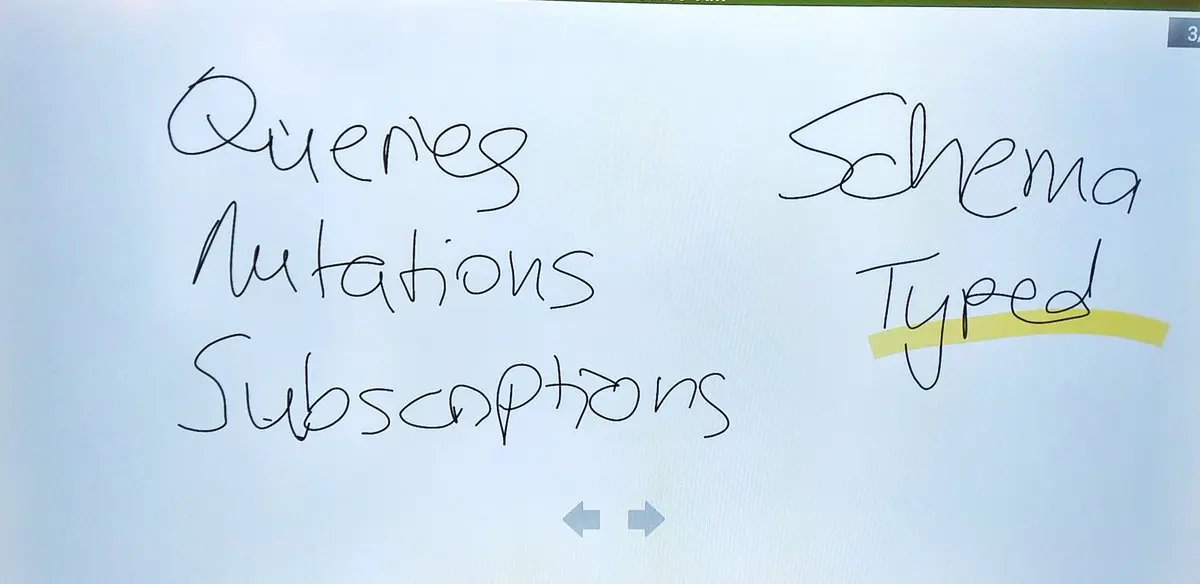 Queries
Mutations
Subscriptions
Schema
Typed